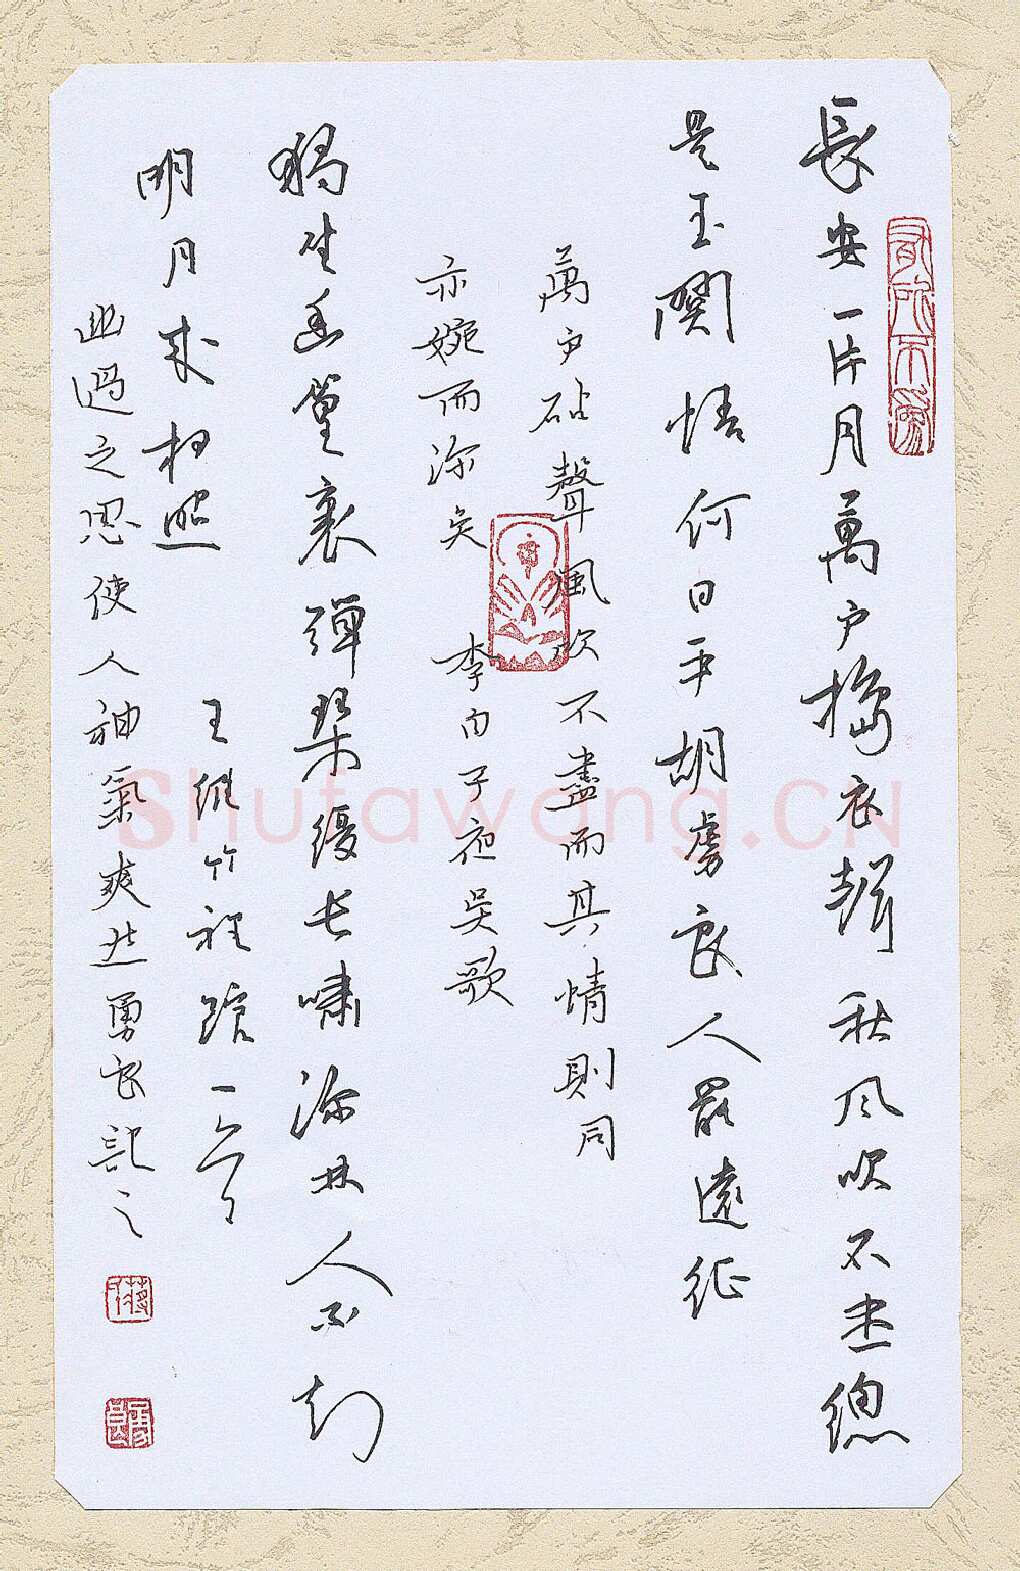 有所不為
長安一片月萬户搗衣聲秋风吹不盡總
是玉關情何日平胡虜良人罷遠征
萬户砧聲風吹不盡而其情則同
亦婉而深矣 李白子夜吴歌
獨坐幽篁裏彈琴復長嘯深林人不知
明月来相照
王維竹裡館一
幽過之思使人神氣爽然勇良記之
Shufawang.CN